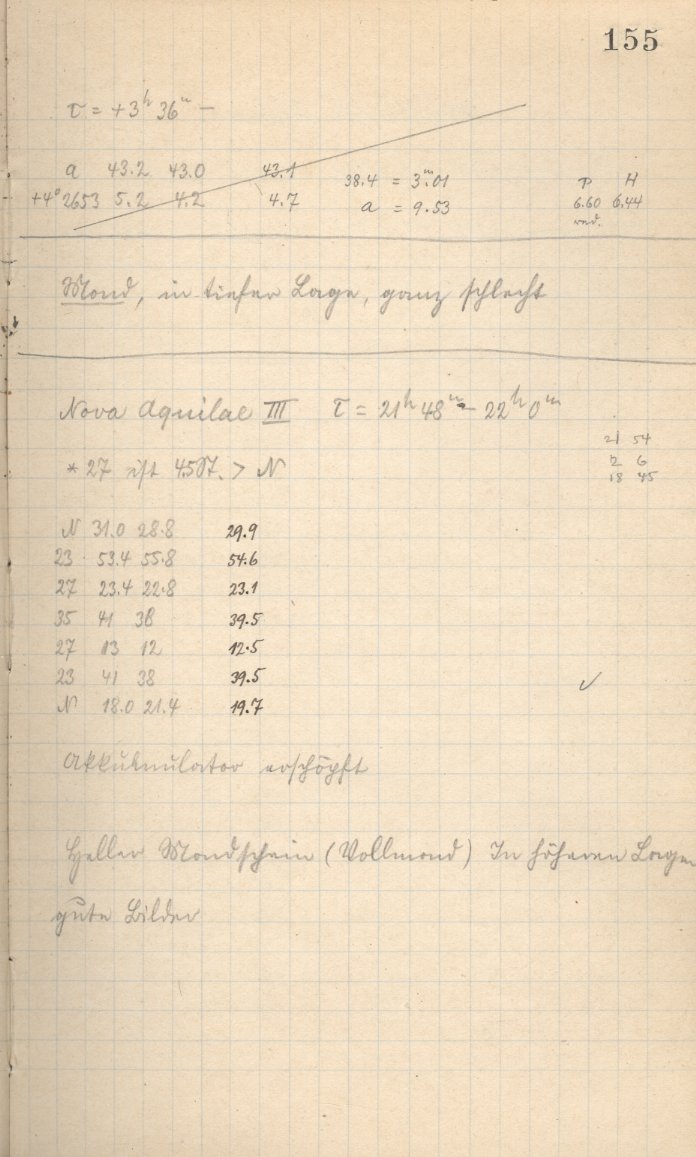 155
τ = +3ʰ 36ᵐ —
a 43.2 43.0 43.1 38.4 = 3ᵐ.01 P H
+4° 2653 5.2 4.2 4.7 a = 9.53 6.60 6.44
red.
Mond, in tiefer Lage, ganz schlecht
Nova Aquilae III τ = 21ʰ 48ᵐ – 22ʰ 0ᵐ
21 54
* 27 ist 4.5 St. > N 12 6
18 45
N 31.0 28.8 29.9
23 53.4 55.8 54.6
27 23.4 22.8 23.1
35 41 38 39.5
27 13 12 12.5
23 41 38 39.5
N 18.0 21.4 19.7
Akkumulator erschöpft
Heller Mondschein (Vollmond) In höheren Lagen
gute Bilder